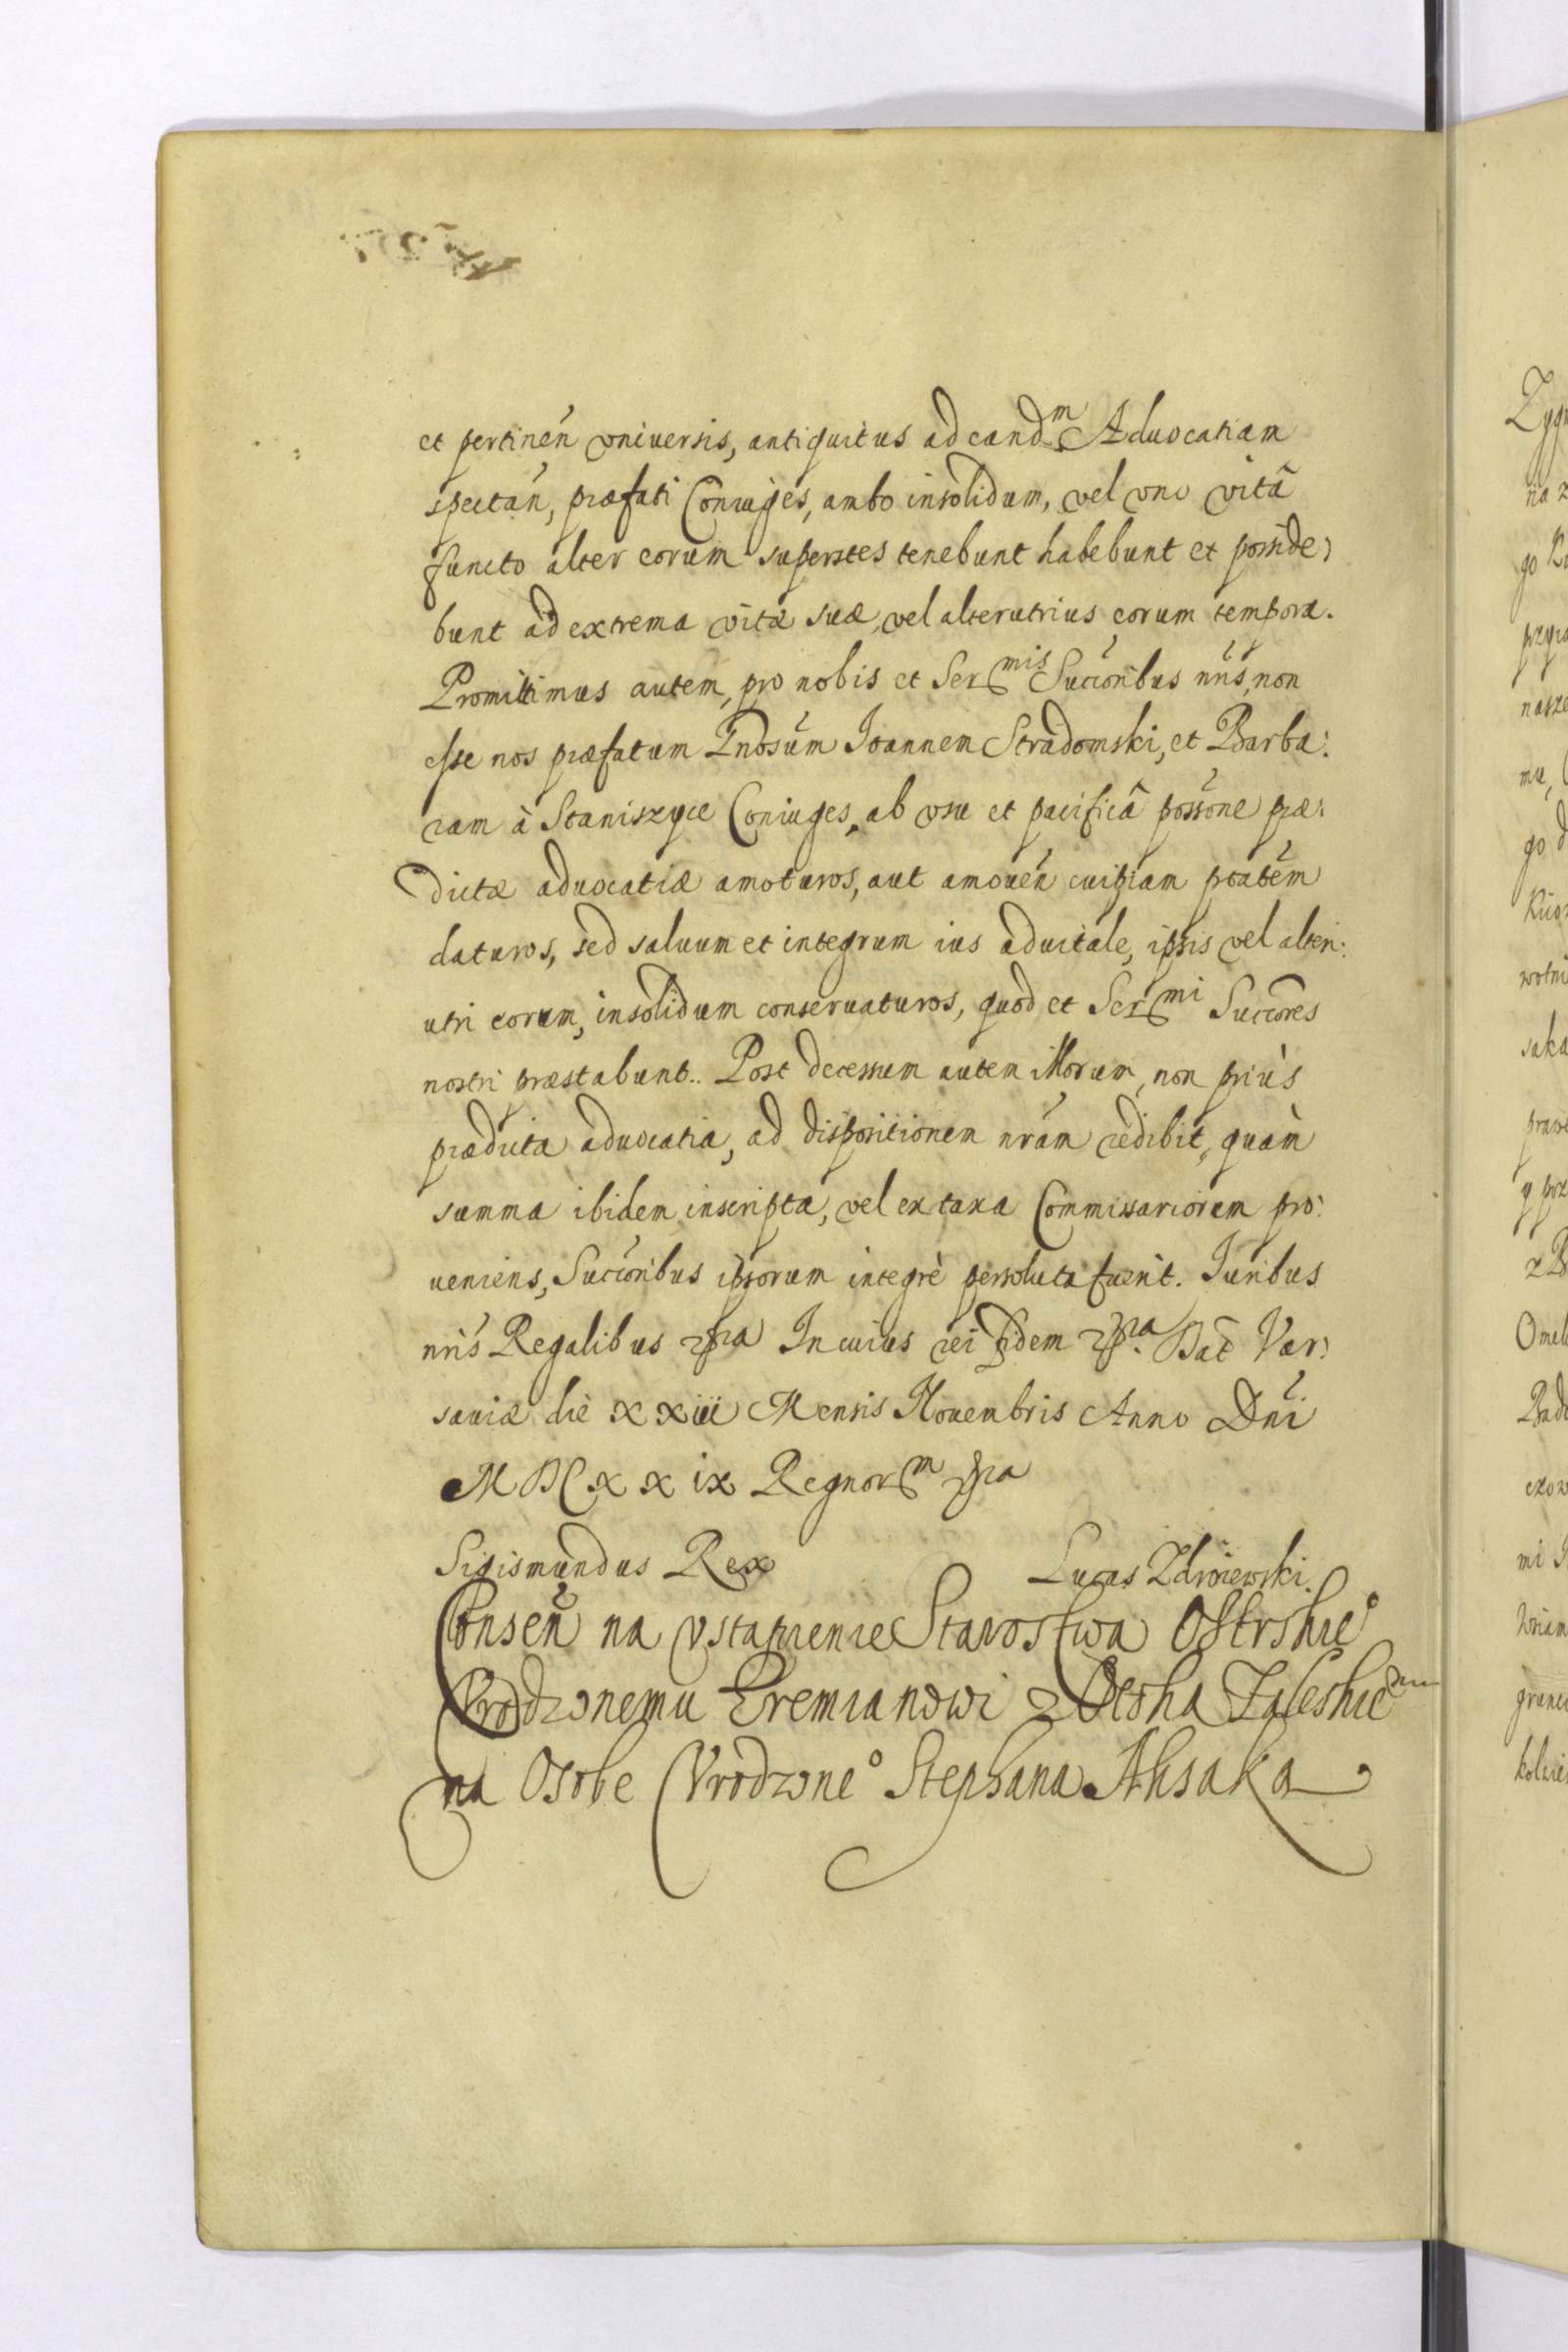 et pertineñ vniuersis, antiquitus ad eand^m Aduocatiam
spectań, præfati Coniuges, ambo insolidum, vel vno vitâ
functo alter eorum superstes tenebunt habebunt et posside:
bunt ad extrema vitæ suæ, vel alterutrius eorum tempora.
Promittimus autem, pro nobis et Ser^mis Succoribus nris, non
esse nos præfatum Gnosum Ioannem Stradomski, et Barba:
ram à Staniszyce Coniuges, ab vsu et pacificâ possone præ:
dictæ aduocatiæ amoturos, aut amoueń cuipiam ptatem
daturos, sed saluum et integrum ius aduitale, ipsis vel alter:
utri eorum, insolidum conseruaturos, quod et Ser^mi Succores
nostri præstabunt. Post decessum autem illorum, non priùs
prædicta aduocatia, ad dispositionem nram redibit, quàm
summa ibidem inscripta, vel ex taxa Commissariorum pro:
ueniens, Succoribus ipsorum integrè persoluta fuerit. Iuribus
nris Regalibus &ra In cuius rei fidem &ra. Dat Var:
sauiæ die xxiii Mensis Nouembris Anno Dni
MDCxxix Regnor^m &ra
Sigismundus Rex Lucas
Conseń na vstapienie Starostwa Ostrskie°
Vrodzonemu Eremianowi z Otoka Zaleskie^mu
na Osobe Vrodzone° Stephana Aksaka
Zygm
na z
go
nasze
mu,
go d
Kiio
wotni
saka
praw
y prz
z B
Omel
mi
grunt
kolwie